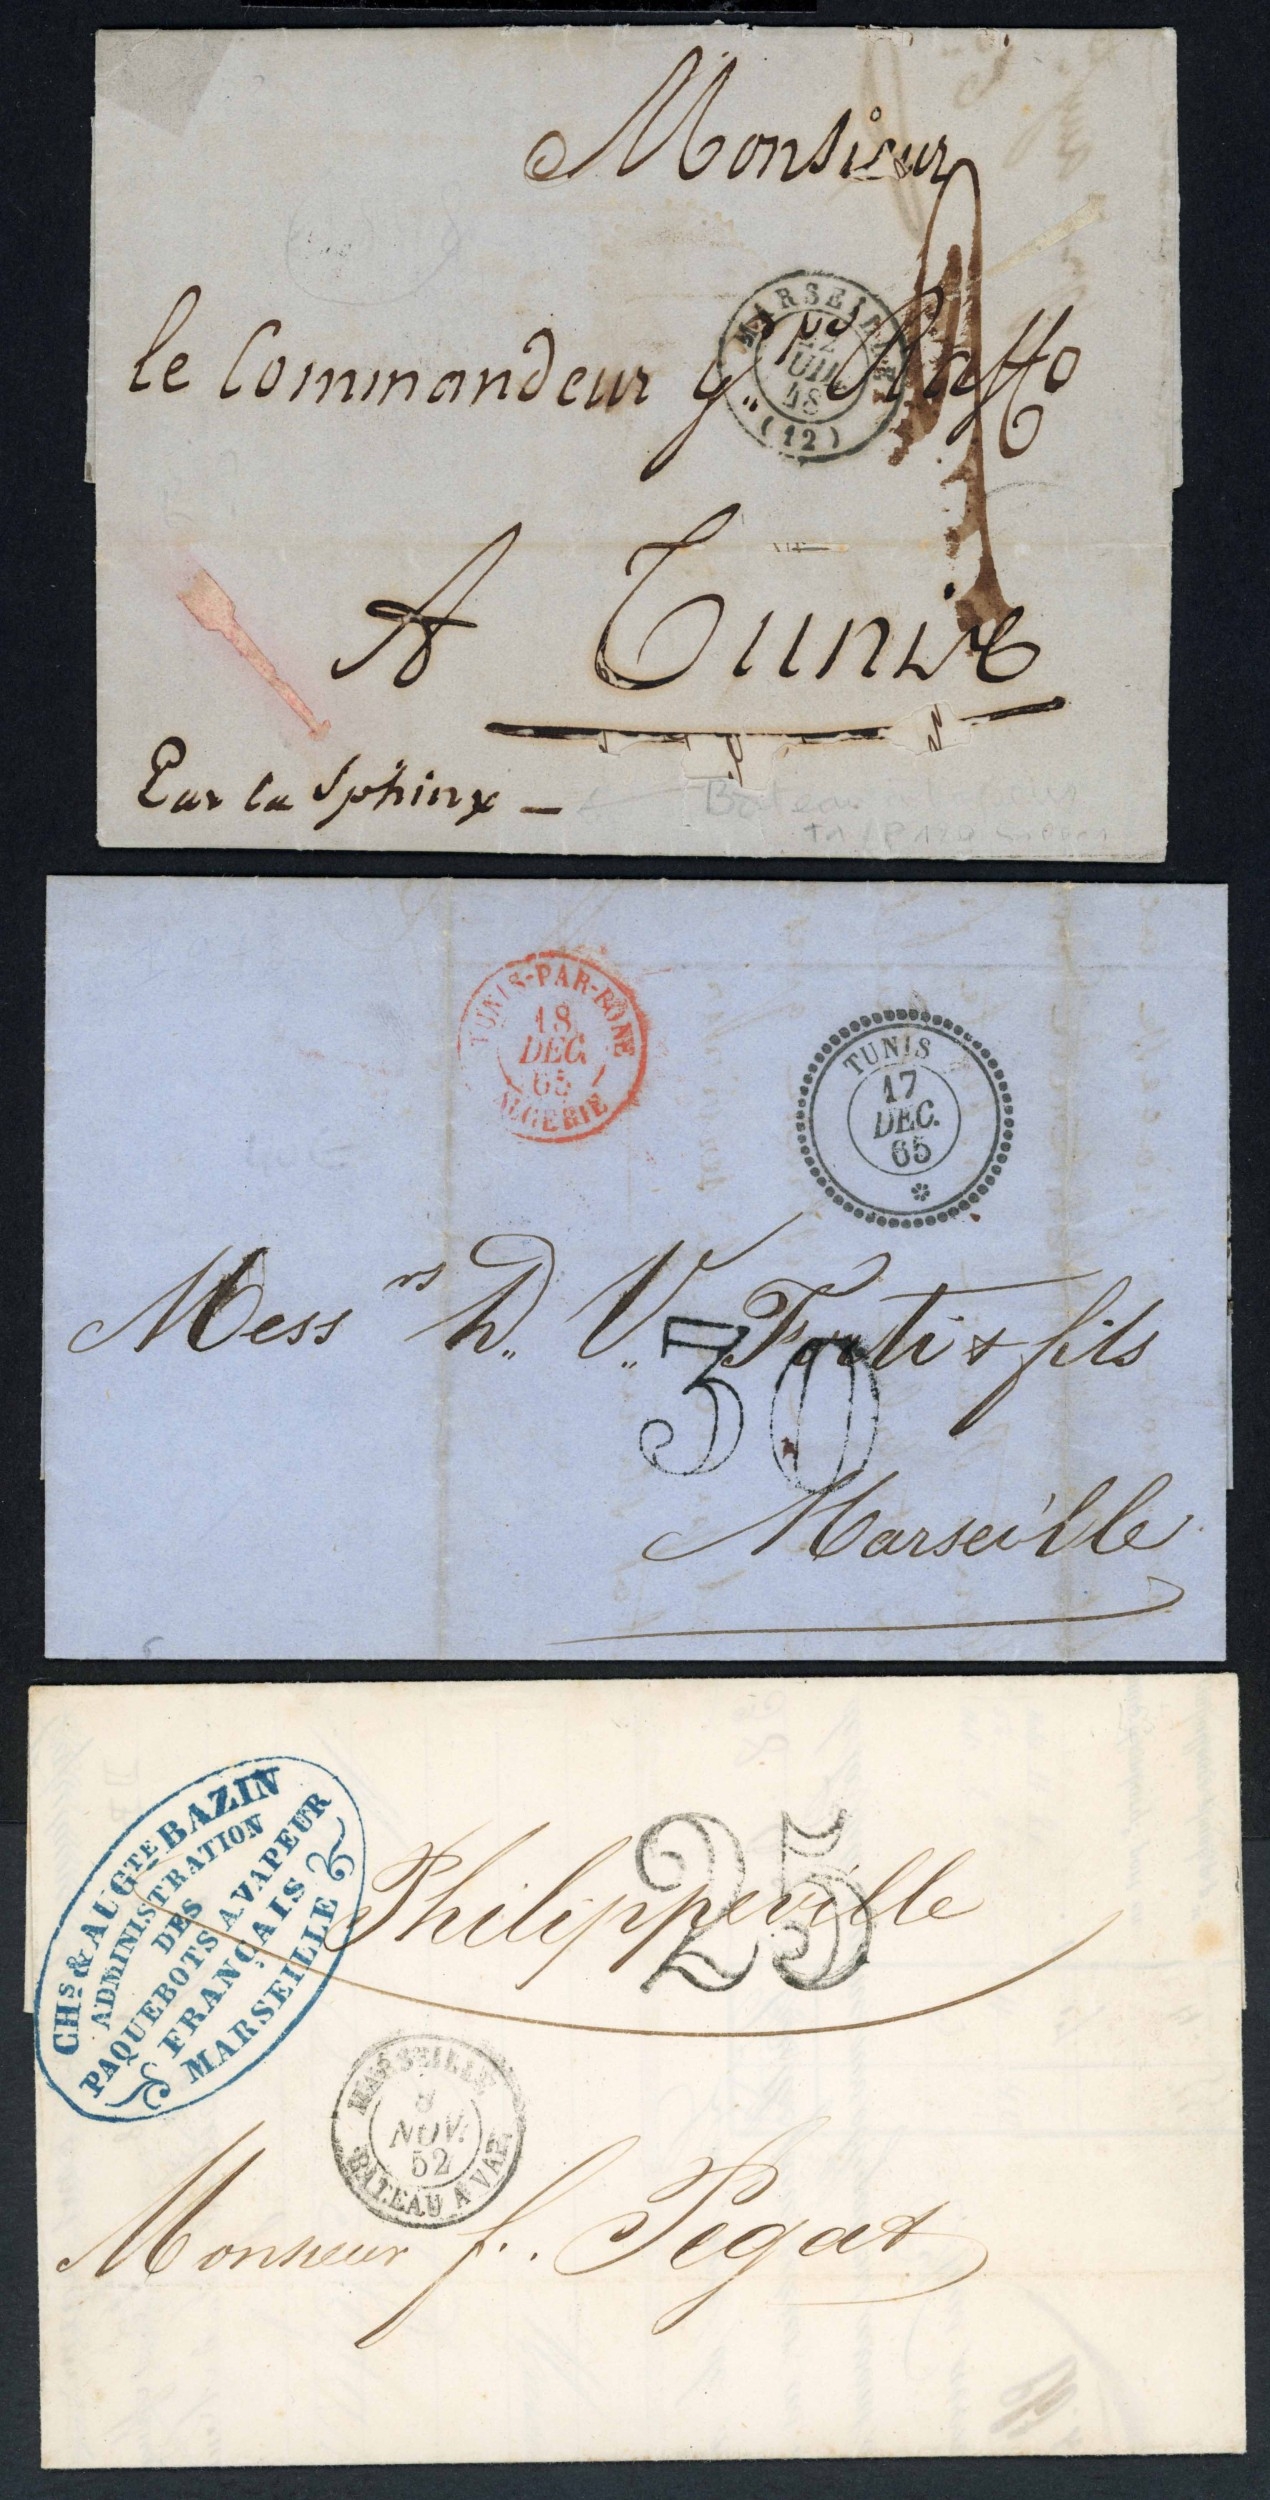 Monsieur
le Commandeur Gpe Raffo
MARSEILLE
12
JUIL
48
(12)
A Tunis
Par la Sphinx –
Bateau
TUNIS-PAR-BÔNE
18
DEC.
65
ALGERIE
TUNIS
17
DEC.
65
Messrs D. V. Forti & fils
30
Marseille
CHs & AUGTE BAZIN
ADMINISTRATION
DES
PAQUEBOTS A VAPEUR
FRANÇAIS
MARSEILLE
Philippeville
25
MARSEILLE
8
NOV.
52
BATEAU A VAP.
Monsieur f. Pégat